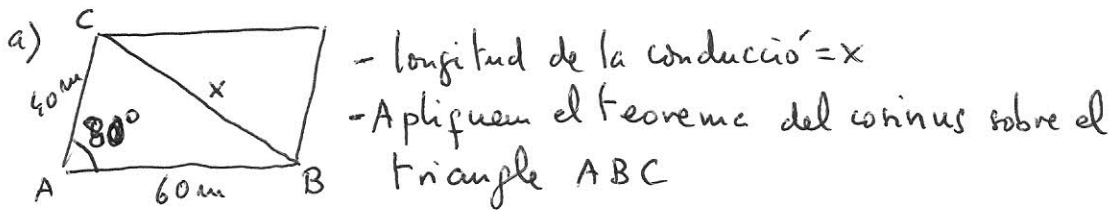 a)
C
40m
80°
x
A
60m
B
- longitud de la conducció = x
- Apliquem el teorema del cosinus sobre el
triangle ABC